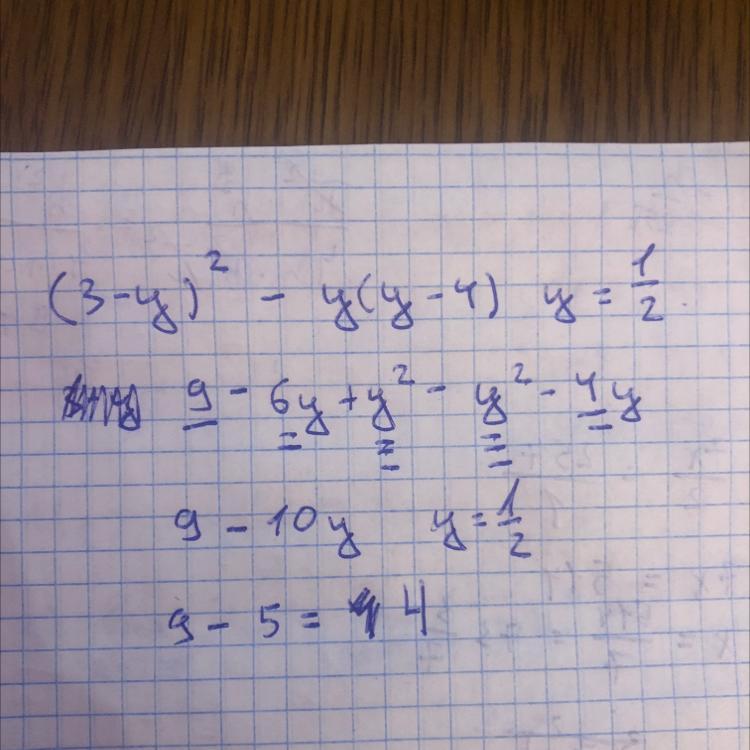 (3-y)² - y(y-4) y = 1/2
9 - 6y + y² - y² - 4y
9 - 10y y = 1/2
9 - 5 = 4